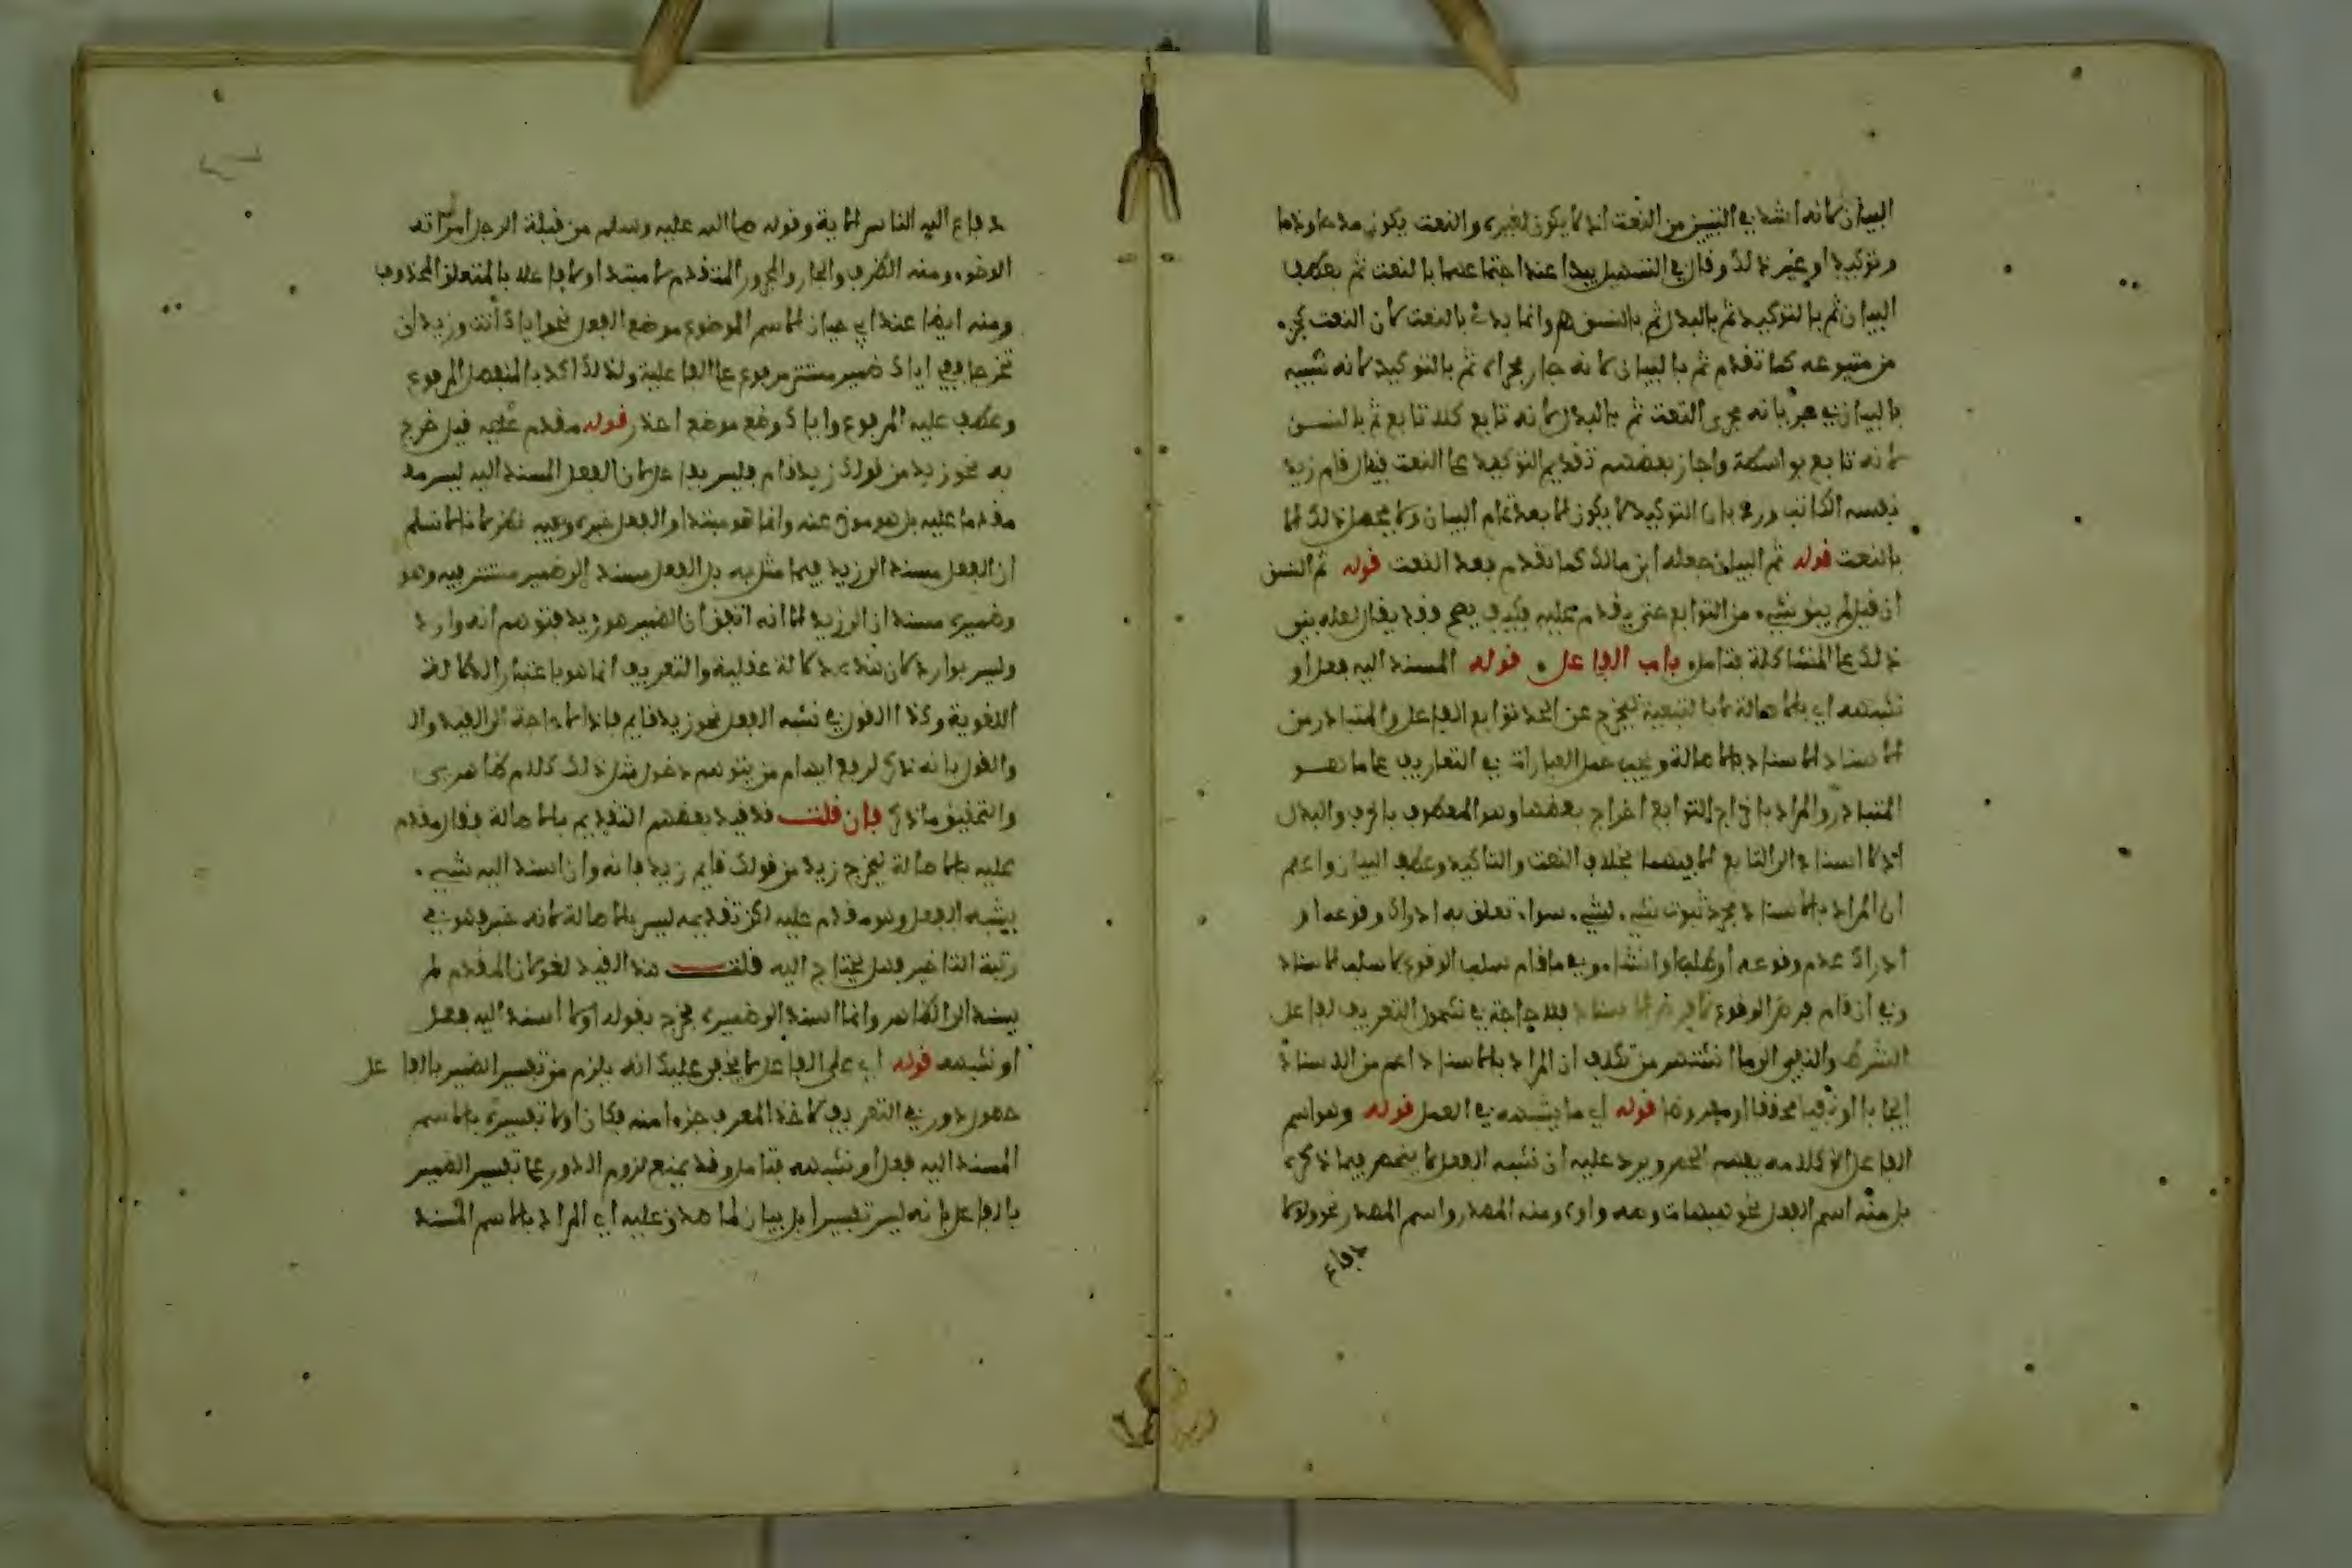 البيان لأنه أشد في التبيين من النعت إذ لا يكون لغيره والنعت يكون مدحا وذما
وتوكيدا وغير ذلك وقال في التسهيل يبدا عند اجتماعها بالنعت ثم بعطف
البيان ثم بالتوكيد ثم بالبدل ثم بالنسق هـ وإنما بدئ بالنعت لأن النعت كجزء
من متبوعه كما تقدم ثم بالبيان لأنه جار مجراه ثم بالتوكيد لأنه شبيه
بالبيان في جريانه مجرى النعت ثم بالبدل لأنه تابع كلا تابع ثم بالنسق
لأنه تابع بواسطة وأجاز بعضهم تقديم التوكيد على النعت فيقال قام زيد
نفسه الكاتب ورد بأن التوكيد لا يكون إلا بعد تمام البيان ولا يحصل ذلك إلا
بالنعت قوله ثم البيان جعله ابن مالك كما تقدم بعد النعت قوله ثم النسق
إن قيل لم يبق شيء من التوابع حتى يقدم عليه فكيف يصح وقد يقال لعله بنى
ذلك على المشاكلة فتامل باب الفاعل قوله المسند إليه فعل أو
شبهه أي بالأصالة لا بالتبعية ليخرج عن الحد توابع الفاعل والمتبادر من
الإسناد الإسناد بالأصالة ويجب حمل العبارات في التعاريف على ما هو
المتبادر والمراد بإخراج التوابع إخراج بعضها وهو المعطوف بالحرف والبدل
إذ لا إسناد إلى التابع إلا فيهما بخلاف النعت والتاكيد وعطف البيان واعلم
أن المراد بالإسناد مجرد ثبوت شيء لشيء سواء تعلق به إدراك وقوعه أو
إدراك عدم وقوعه أو طلب أو إنشاء وفي ما قام سلب الوقوع لا سلب الإسناد
وفي إن قام فرض الوقوع لا فرض الإسناد فلا حاجة في شمول التعريف لفاعل
الشرط والنفي إلى ما اشتهر من تكلف أن المراد بالإسناد أعم من الإسناد
إيجابا أو نفيا محققا أو مفروضا قوله أي ما يشبهه في العمل قوله وهو اسم
الفاعل الخ كلامه يفهم الحصر ويرد عليه أن شبه الفعل لا ينحصر فيما ذكره
بل منه اسم الفعل نحو هيهات وصه وأوه ومنه المصدر واسم المصدر نحو ولولا
دفاع
دفاع الله الناس الآية وقوله صلى الله عليه وسلم من قبلة الرجل امرأته
الوضوء ومنه الظرف والجار والمجرور المتقدم لا مبتدا ولا فاعلا بالمتعلق المحذوف
ومنه أيضا عند أبي حيان الاسم الموضوع موضع الفعل نحو إياك أنت وزيد أن
تخرجا ففي إياك ضمير مستتر مرفوع على الفاعلية ولذلك أكد بالمنفصل المرفوع
وعطف عليه المرفوع وإياك وقع موضع احذر قوله مقدم عليه قيل خرج
به نحو زيد من قولك زيد قام فليس بفاعل لأن الفعل المسند إليه ليس مـ
مقدما عليه بل هو موخر عنه وإنما هو مبتدا والفعل خبره وفيه نظر لأنا لا نسلم
أن الفعل مسند إلى زيد فيما مثل به بل الفعل مسند إلى ضمير مستتر فيه وهو
وضميره مسندان إلى زيد إلا أنه اتفق أن الضمير هو زيد فتوهم أنه وارد
وليس بوارد لأن هذه دلالة عقلية والتعريف إنما هو باعتبار الدلالة
اللغوية وكذا القول في شبه الفعل نحو زيد قايم فإذا لا حاجة إلى القيد
والقول بأنه ذكر لرفع إيهام من يتوهم دخول مثل ذلك كلام ظاهري
والتحقيق ما ذكر فإن قلت قد قيد بعضهم التقديم بالأصالة فقال مقدم
عليه بالأصالة ليخرج زيد من قولك قايم زيد فإنه وإن أسند إليه شيء
يشبه الفعل وهو مقدم عليه لكن تقديمه ليس بالأصالة لأنه خبر فهو في
رتبة التاخير فهل يحتاج إليه قلت هذا القيد لغو لأن المقدم لم
يسند إلى الظاهر وإنما أسند إلى ضميره فخرج بقوله أولا أسند إليه فعل
أو شبهه قوله أي على الفاعل لا يخفى عليك أنه يلزم من تفسير الضمير بالفاعل
حصول دور في التعريف لأخذ المعرف جزءا منه فكان أولا تفسيره بالاسم
المسند إليه فعل أو شبهه فتامل وقد يمنع لزوم الدور على تفسير الضمير
بالفاعل بأنه ليس تفسيرا بل بيان لما صدق عليه أي المراد بالاسم المسند